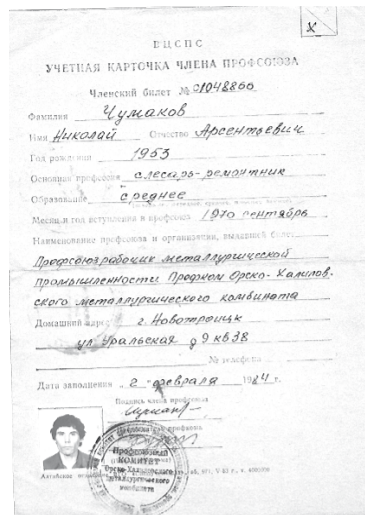 ВЦСПС
УЧЕТНАЯ КАРТОЧКА ЧЛЕНА ПРОФСОЮЗА
Членский билет № 01048866
Фамилия Чумаков
Имя Николай Отчество Арсентьевич
Год рождения 1953
Основная профессия слесарь-ремонтник
Образование среднее
Месяц и год вступления в профсоюз 1970 сентябрь
Наименование профсоюза и организации, выдавшей билет
Профсоюз рабочих металлургической
промышленности Профком Орско-Халилов-
ского металлургического комбината
Домашний адрес г. Новотроицк
ул Уральская д 9 кв 38
№ телефона
Дата заполнения „2" февраля 1984 г.
Подпись члена профсоюза
Профсоюзный
КОМИТЕТ
Орско-Халиловского
металлургического
комбината